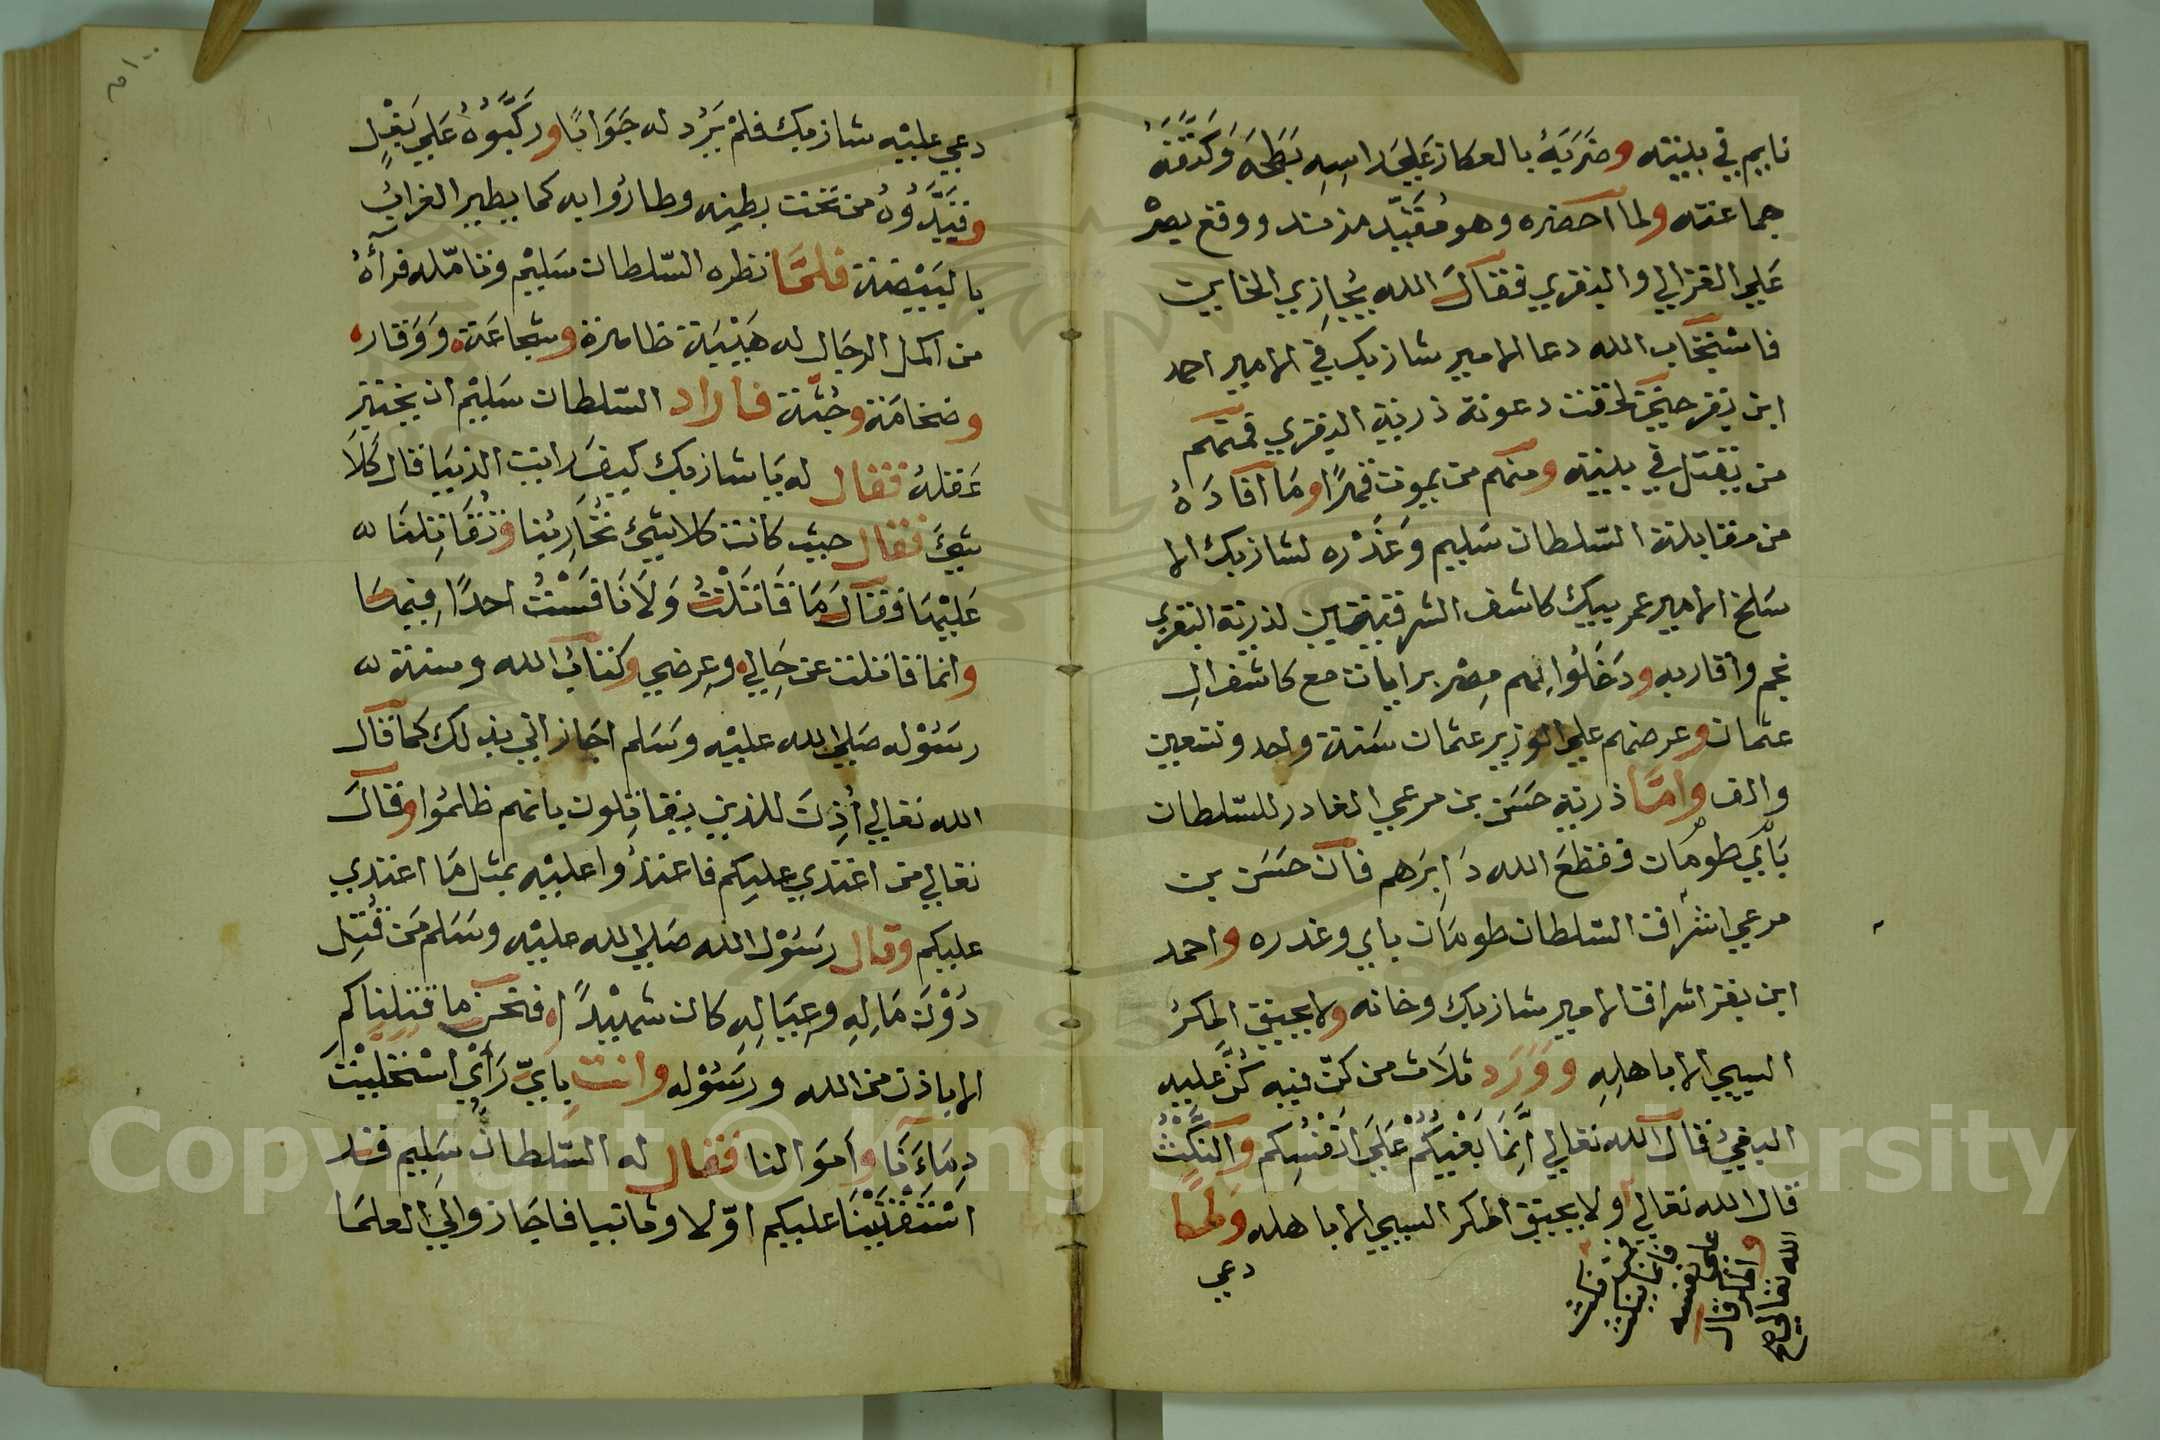 نايم في بيته وضربه بالعكاز علي راسه بطحه وكتفته
جماعته ولما احضره وهو مقيد مزمند ووقع بصره
علي الغزالي والبقري فقال الله يجازي الخاين
فاستجاب الله دعا الامير شازبك في الامير احمد
ابن بقر حتي لحقت دعوته ذرية البقري فمنهم
من يقتل في بيته ومنهم من يموت قهرا وما افاده
من مقابلة السلطان سليم وغدره لشازبك الا
سلخ الامير عمر بيك كاشف الشرقية لذرية البقري
نجم واقاربه ودخلوا بهم مصر برايات مع كاشف ال
عثمان وعرضهم علي الوزير عثمان سنة واحد وتسعين
والف واما ذرية حسن بن مرعي الغادر للسلطان
باي طومان فقطع الله دابرهم فان حسن بن
مرعي اشراف السلطان طومان باي وغدره واحمد
ابن بقر اشراف الامير شازبك وخانه ولا يحيق المكر
السيي الا باهله وورد ثلاث من كن فيه كن عليه
البغي قال الله تعالي انما بغيكم علي انفسكم والنكث
قال الله تعالي ولا يحيق المكر السيي الا باهله ولما
والمكر قال
الله تعالي
فمن نكث فانما ينكث
علي نفسه
دعي
دعي عليه شازبك فلم يرد له جوابا وركبوه علي بغل
وقيدوه من تحت بطنه وطاروا به كما يطير الغراب
بالبيضة فلما نظره السلطان سليم وتامله فرآه
من اكمل الرجال له هيبة ظاهرة وشجاعة ووقار
وضخامة وجثة فاراد السلطان سليم ان يختبر
عقله فقال له يا شازبك كيف رايت الدنيا قال كلا
شيء فقال حيث كانت كلا شيء تحاربنا وتقاتلنا
عليها فقال ما قاتلت ولا نافست احدا فيها
وانما قاتلت عن حالي وعرضي وكتاب الله وسنة
رسوله صلي الله عليه وسلم اجازاني بذلك كما قال
الله تعالي أذن للذين يقاتلون بانهم ظلموا وقال
تعالي من اعتدي عليكم فاعتدوا عليه بمثل ما اعتدي
عليكم وقال رسول الله صلي الله عليه وسلم من قتل
دون ماله وعياله كان شهيدا فنحن ما قتلناكم
الا باذن من الله ورسوله وانت باي رأي استحليت
دماءنا واموالنا فقال له السلطان سليم قد
استفتينا عليكم اولا وثانيا فاجازوا لي العلما